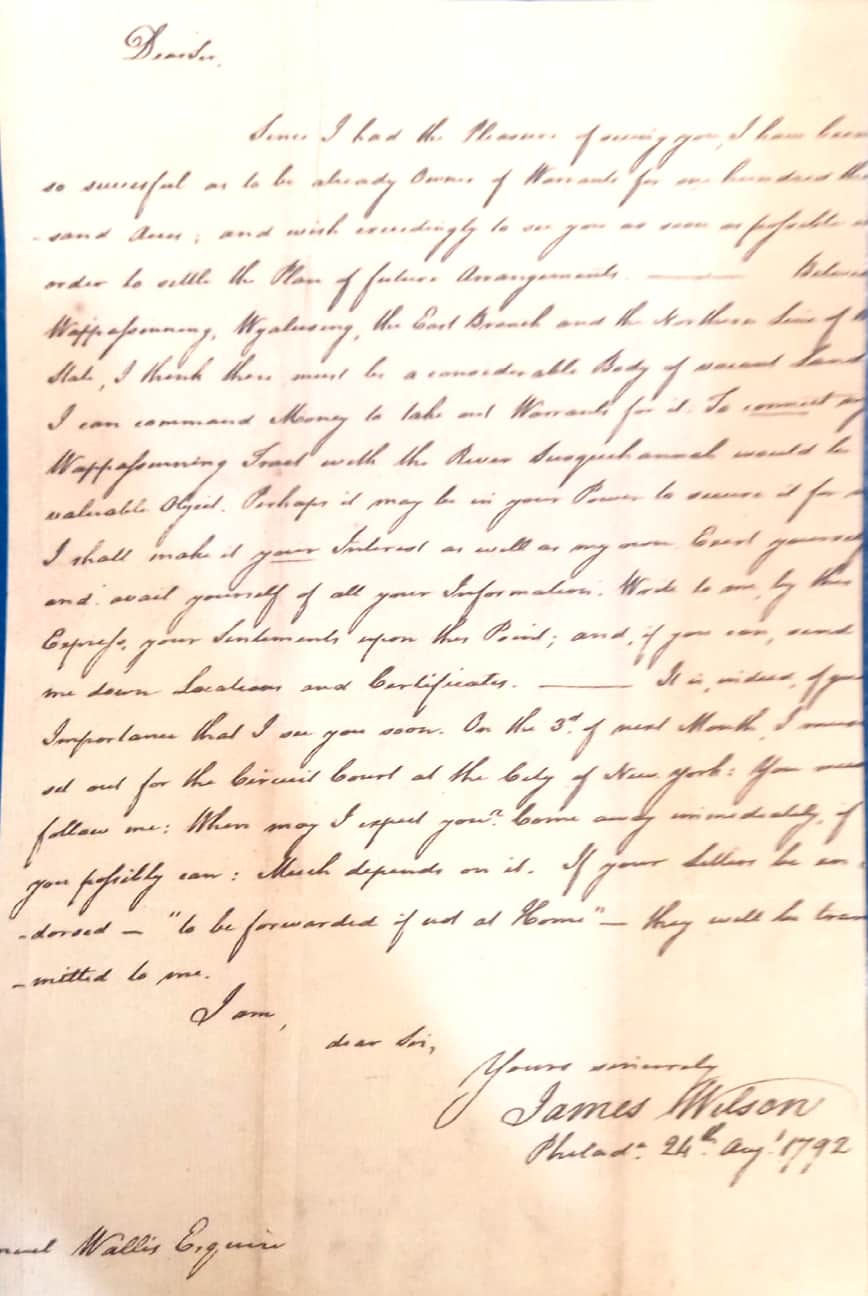 Dear Sir,
Since I had the Pleasure of seeing you, I have been
so successful as to be already Owner of Warrants for one hundred tho
-sand Acres; and wish exceedingly to see you as soon as possible
order to settle the Plan of future Arrangements. —— Betwee
Wappasinning, Wyalusing, the East Branch and the Northern Line of
State, I think there must be a considerable Body of vacant Land
I can command Money to take out Warrants for it. To connect my
Wappasinning Tract with the River Susquehannah would be
valuable Object. Perhaps it may be in your Power to secure it for
I shall make it your Interest as well as my own. Exert yourself
and avail yourself of all your Information. Write to me, by this
Express, your Sentiments upon this Point; and, if you can, send
me down Locations and Certificates. —— It is, indeed, of
Importance that I see you soon. On the 3d. of next Month, I must
set out for the Circuit Court at the City of New York: You
follow me: When may I expect you? Come away immediately, if
you possibly can: Much depends on it. If your Letters be en-
-dorsed — "to be forwarded if not at Home" — they will be trans
-mitted to me.
I am,
dear Sir,
Yours sincerely
James Wilson
Philada. 24th. Augt. 1792
muel Wallis Esquire